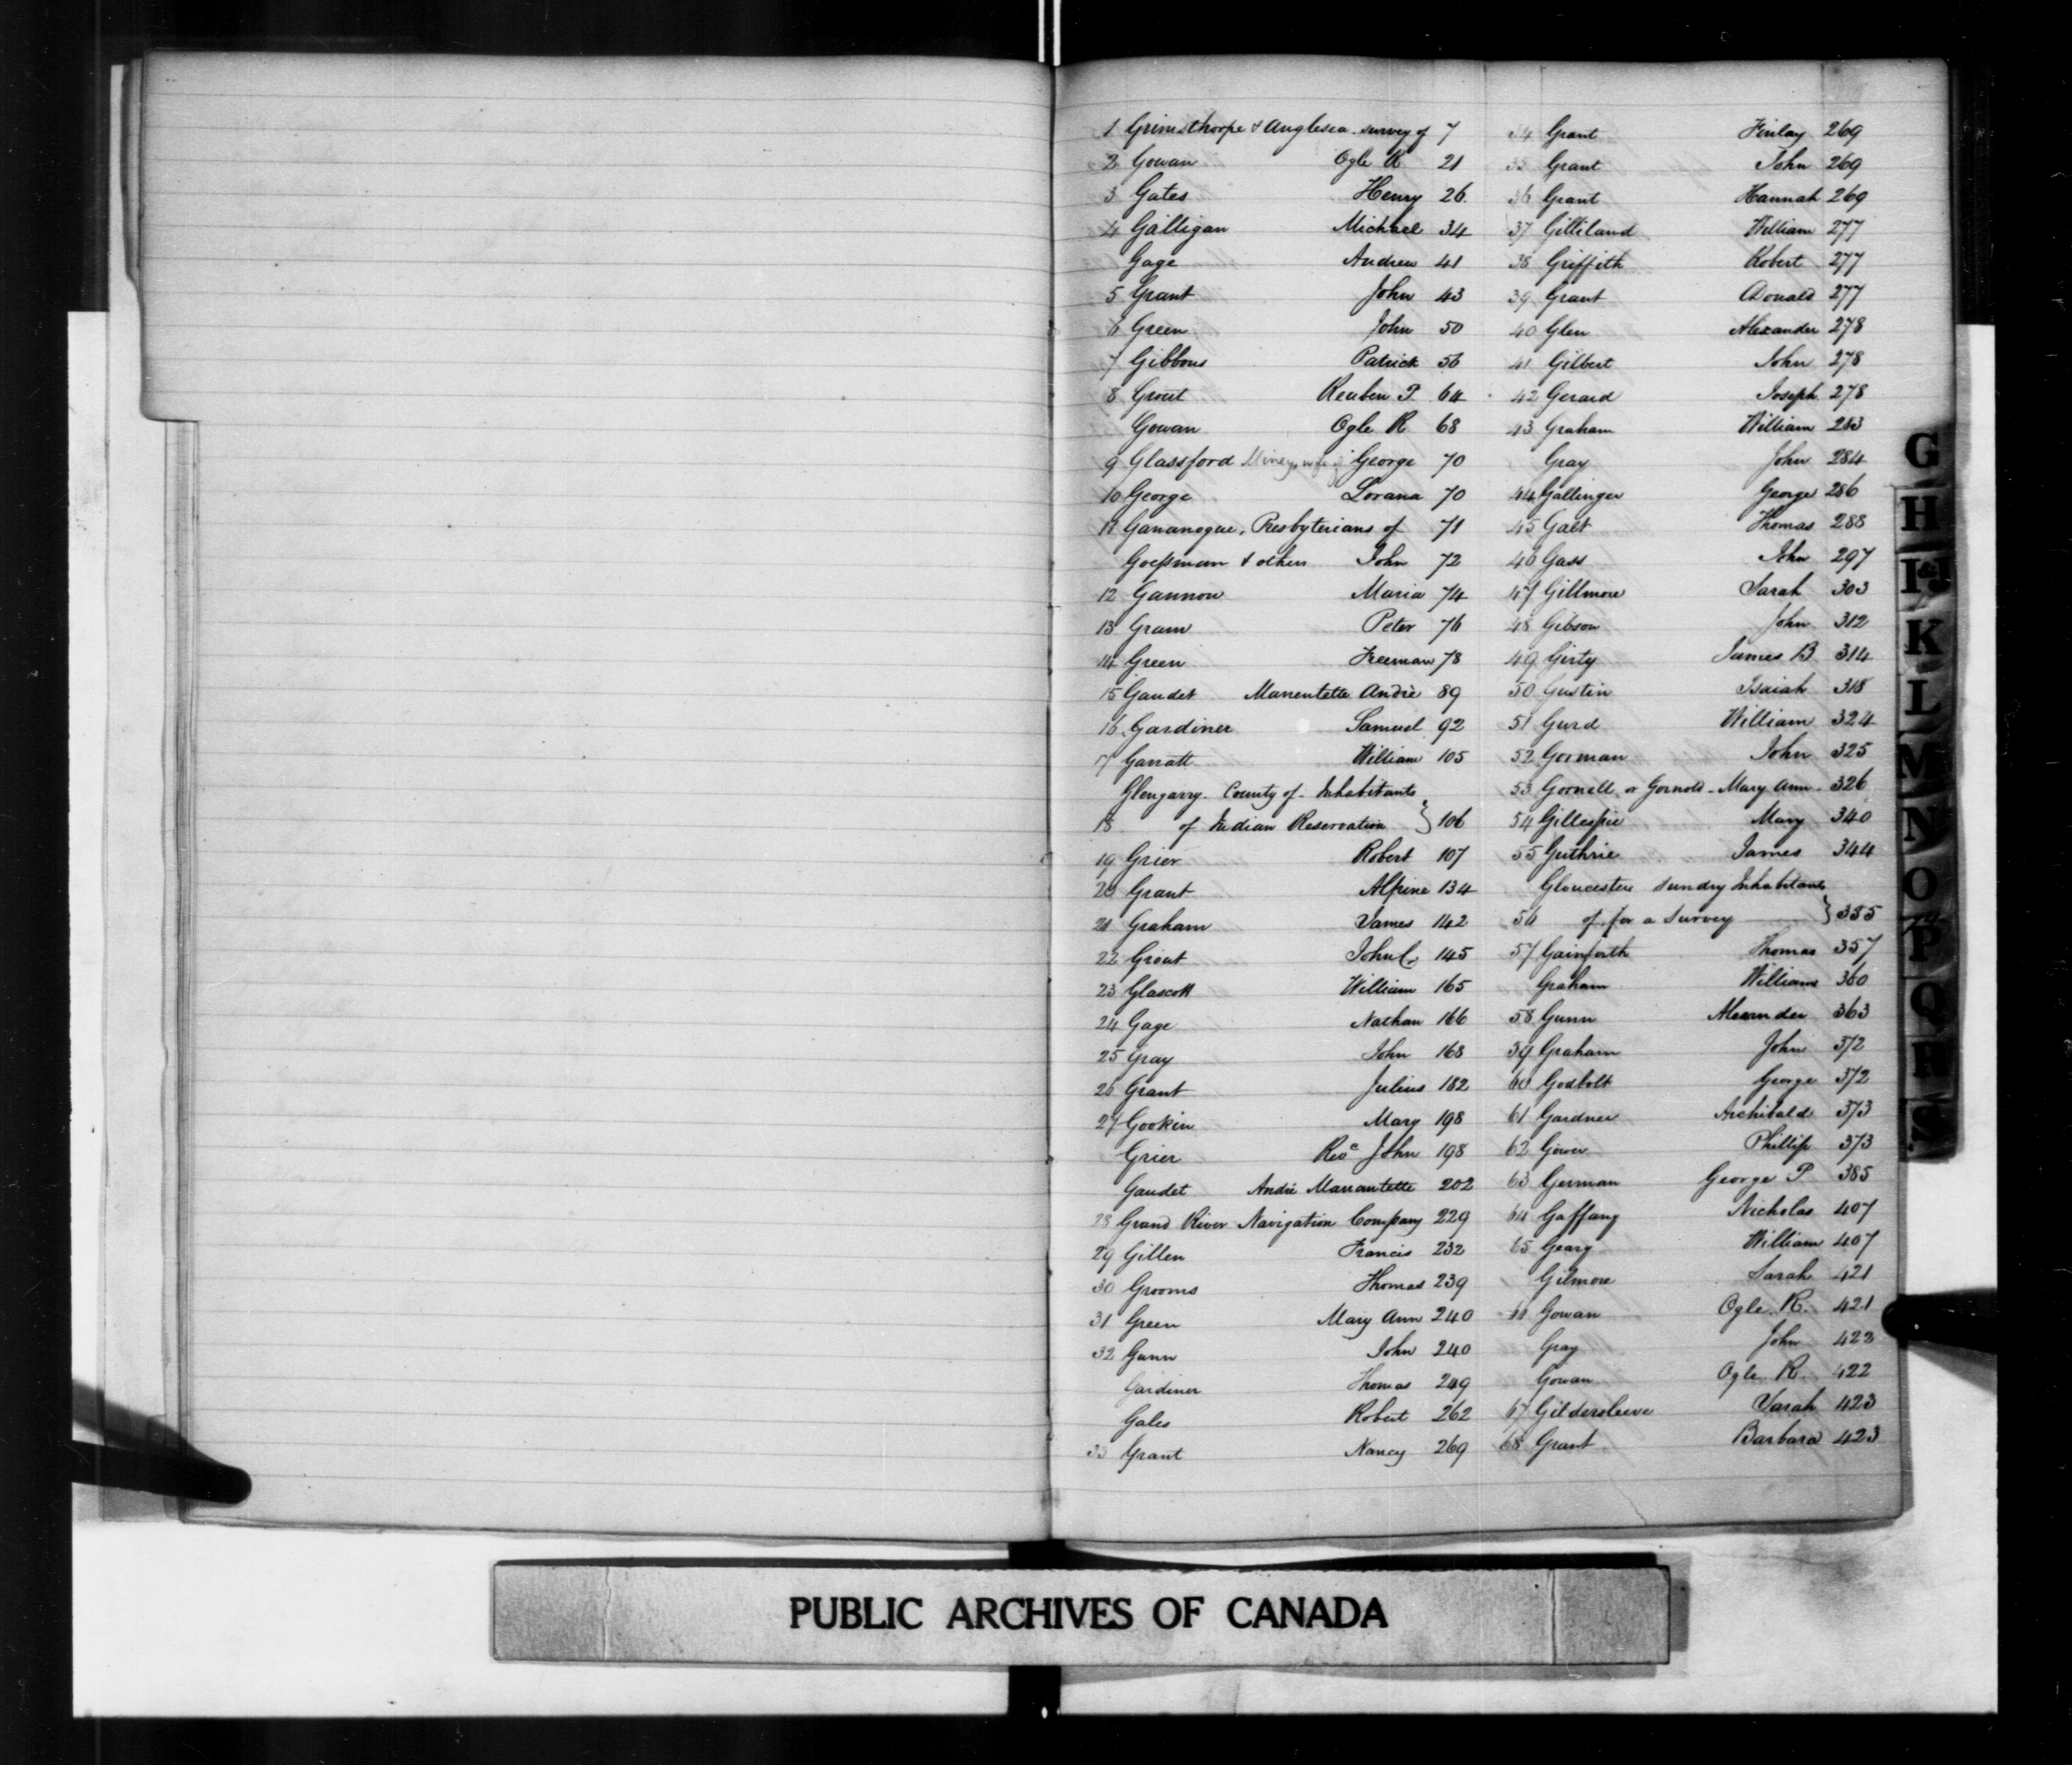 1 Grimsthorpe & Anglesea survey of 7
2 Gowan Ogle R 21
3 Gates Henry 26
4 Galligan Michael 34
Gage Andrew 41
5 Grant John 43
6 Green John 50
7 Gibbons Patrick 56
8 Grout Reuben P. 64
Gowan Ogle R 68
9 Glassford wife of George 70
10 George Lorana 70
11 Gananoque, Presbyterians of 71
Goessman & others John 72
12 Gannon Maria 74
13 Gram Peter 76
14 Green Freeman 78
15 Gaudet Marentette Andrè 89
16 Gardiner Samuel 92
17 Garratt William 105
Glengarry County of Inhabitants
18 of Indian Reservation } 106
19 Grier Robert 107
20 Grant Alpine 134
21 Graham James 142
22 Grout John C. 145
23 Glascott William 165
24 Gage Nathan 166
25 Gray John 168
26 Grant Julius 182
27 Gookin Mary 198
Grier Revd John 198
Gaudet Andrè Marantette 202
28 Grand River Navigation Company 229
29 Gillen Francis 232
30 Grooms Thomas 239
31 Green Mary Ann 240
32 Gunn John 240
Gardiner Thomas 249
Gales Robert 262
33 Grant Nancy 269
34 Grant Finlay 269
35 Grant John 269
36 Grant Hannah 269
37 Gilliland William 277
38 Griffith Robert 277
39 Grant Donald 277
40 Glen Alexander 278
41 Gilbert John 278
42 Gerard Joseph 278
43 Graham William 283
Gray John 284
44 Gallinger George 286
45 Galt Thomas 288
46 Gass John 297
47 Gillmore Sarah 303
48 Gibson John 312
49 Girty James B 314
50 Gustin Isaiah 318
51 Gurd William 324
52 Gorman John 325
53 Gornell or Gornold - Mary Ann - 326
54 Gillespie Mary 340
55 Guthrie James 344
Gloucester Sundry Inhabitants
56 of, for a Survey } 355
57 Gainforth Thomas 357
Graham William 360
58 Gunn Alexander 363
59 Graham John 372
60 Godbolt George 372
61 Gardner Archibald 373
62 Gower Phillip 373
63 German George P 385
64 Gaffany Nicholas 407
65 Geary William 407
Gilmore Sarah 421
66 Gowan Ogle R. 421
Gray John 422
Gowan Ogle R. 422
67 Gildersleeve Sarah 423
68 Grant Barbara 423
G
H
I&J
K
L
M
N
O
P
Q
R
S
PUBLIC ARCHIVES OF CANADA